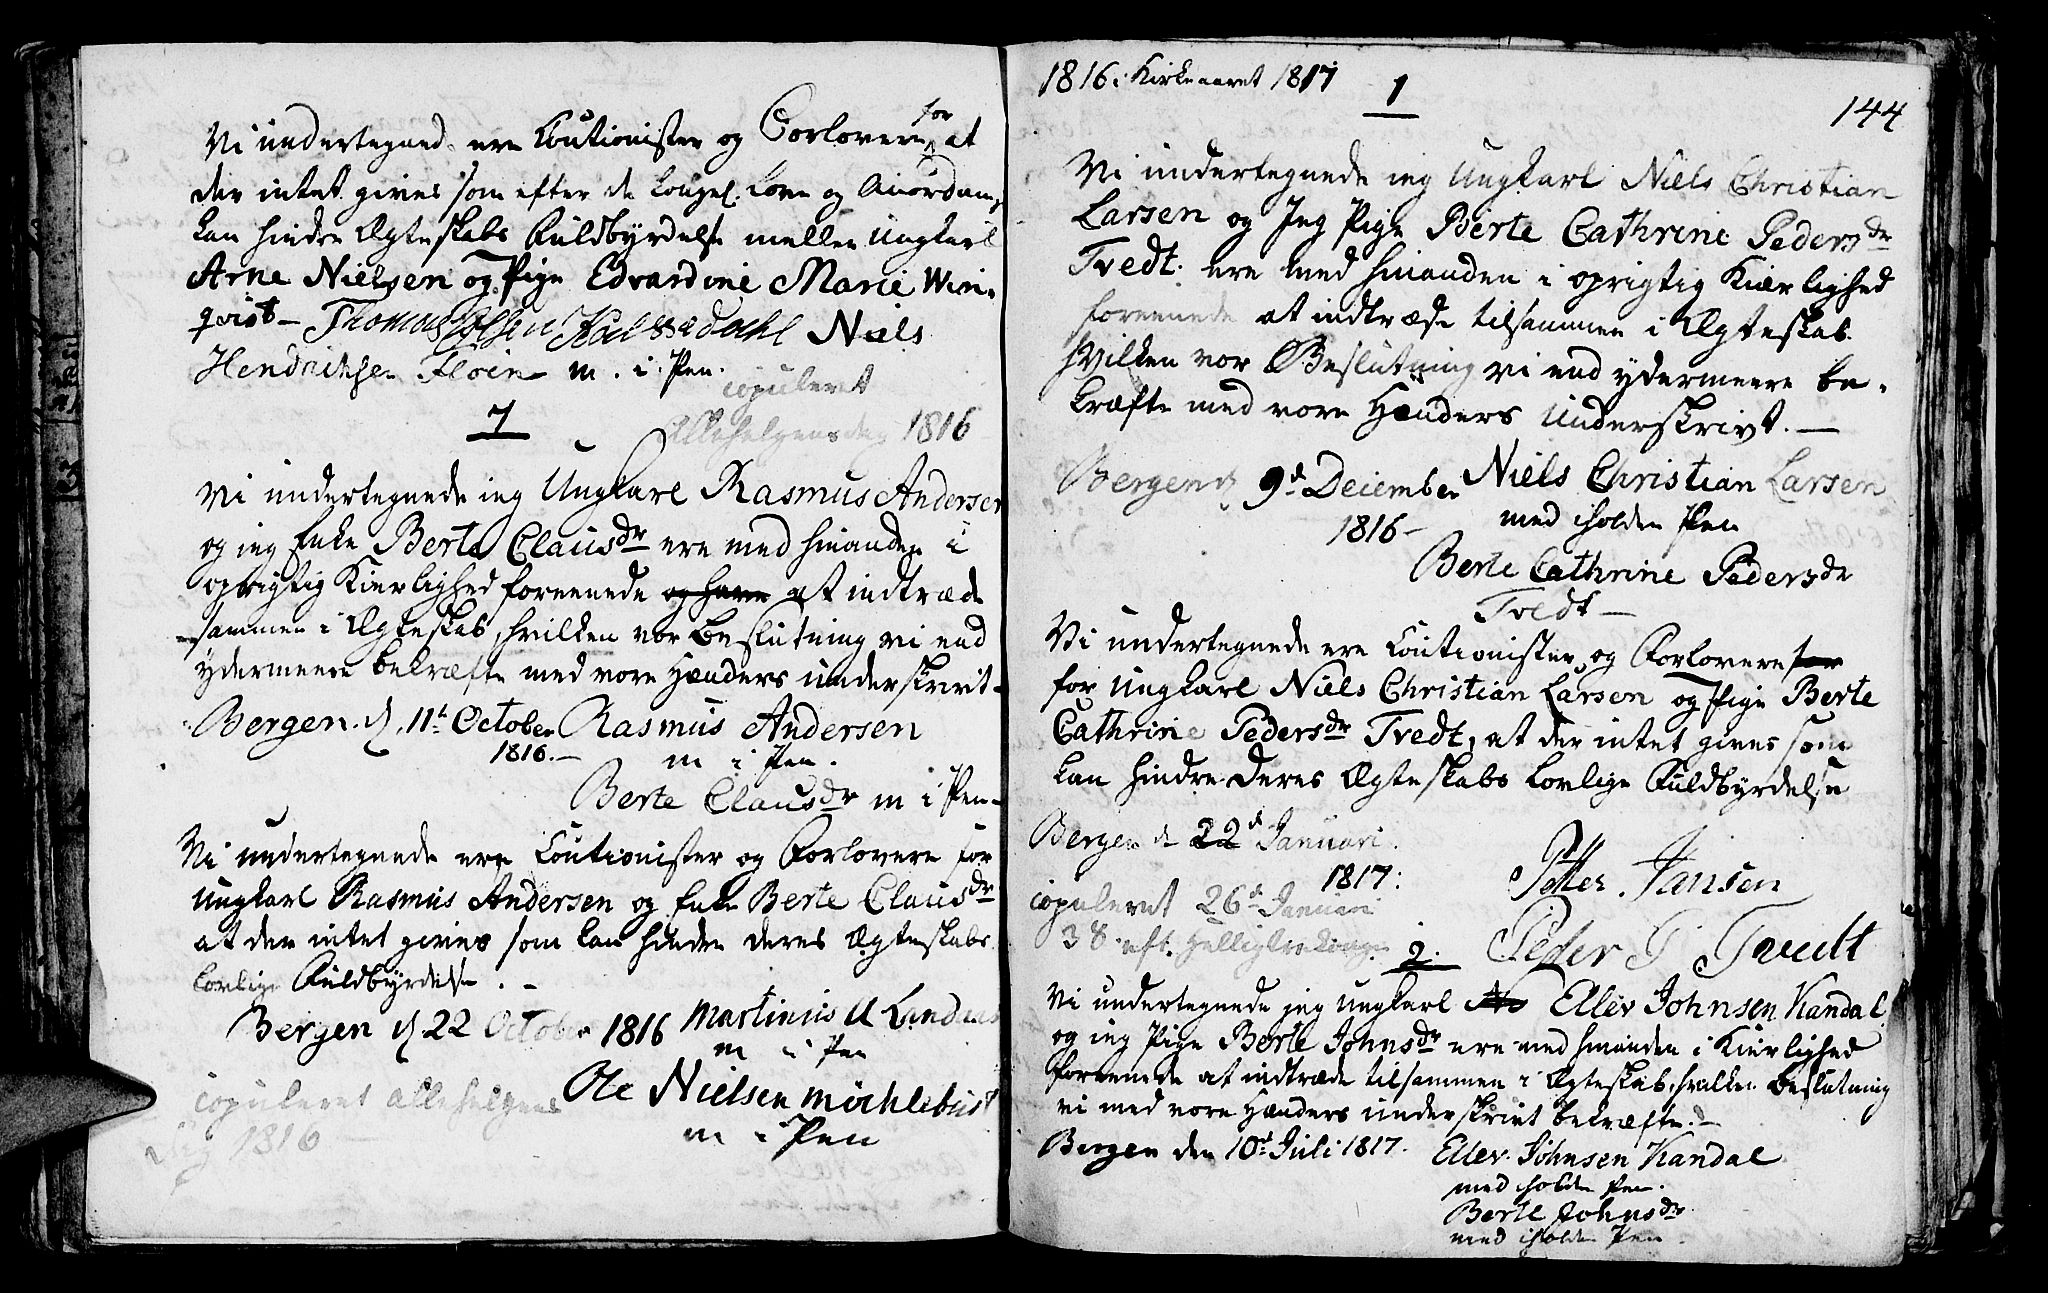 for
Vi undertegnede ere Coutionister og Forlovere at
der intet gives som efter de kongel. Love og Anordn.
kan hindre Ægteskabs Fuldbyrdelse mellem Ungkarl
Arne Nielsen og Pige Edvardine Marie Win-
qvist- Thomas Olsen Dahl Niels
Hendrichsen Fløien m. i. Pen.
copuleret
allehelgensdag 1816
7
Vi undertegnede jeg Ungkarl Rasmus Andersen
og jeg Enke Berte Clausdr ere med hinanden i
oprigtig Kierlighed foreenede og have at indtræde
sammen i Ægteskab, hvilken vor Beslutning vi end
ydermeere bekræfte med vore Hænders underskrivt-
Bergen d. 11t October Rasmus Andersen
1816.- m i Pen.
Berte Clausdr m i Pen-
Vi undertegnede ere Coutionister og Forlovere for
Ungkarl Rasmus Andersen og Enke Berte Clausdr
at der intet gives som kan hindre deres Ægteskabs
lovlige Fuldbyrdelse. -
Bergen d 22 October 1816 Martinus A Landaas
m i Pen
Ole Nielsen Møchlebust
m i Pen
copuleret allehelgens
dag 1816
1816 i Kirkeaaret 1817
1
144
Vi undertegnede jeg Ungkarl Niels Christian
Larsen og Jeg Pige Berte Cathrine Pedersdr
Tvedt. ere med hinanden i oprigtig Kiærlighed
foreenede at indtræde tilsammen i Ægteskab.
Hvilken vor Beslutning vi end ydermeere be-
kræfte med vore Hænders Underskrivt.-
Bergen d. 9d December Niels Christian Larsen
1816- med iholden Pen
Berte Cathrine Pedersdr
Tvedt-
Vi undertegnede ere Coutionister og Forlovere for
for Ungkarl Niels Christian Larsen og Pige Berte
Cathrine Pedersdr Tvedt, at der intet gives som
kan hindre deres Ægteskabs lovlige Fuldbyrdelse
Bergen d 22d Januari.
1817: Petter Jansen
copuleret 26d Januari
3 S. eft. Helligtrekonge Peder J Tvedt
2.
Vi undertegnede jeg Ungkarl Ellev Johnsen Kandal
og jeg Pige Berte Johnsdr ere med hinanden i Kierlighed
foreenede at indtræde tilsammen i Ægteskab, hvilken Beslutning
vi med vore Hænders underskrivt bekræfte.-
Bergen den 10d Juli 1817. Ellev Johnsen Kandal
med iholden Pen.
Berte Johnsdr
med iholden Pen